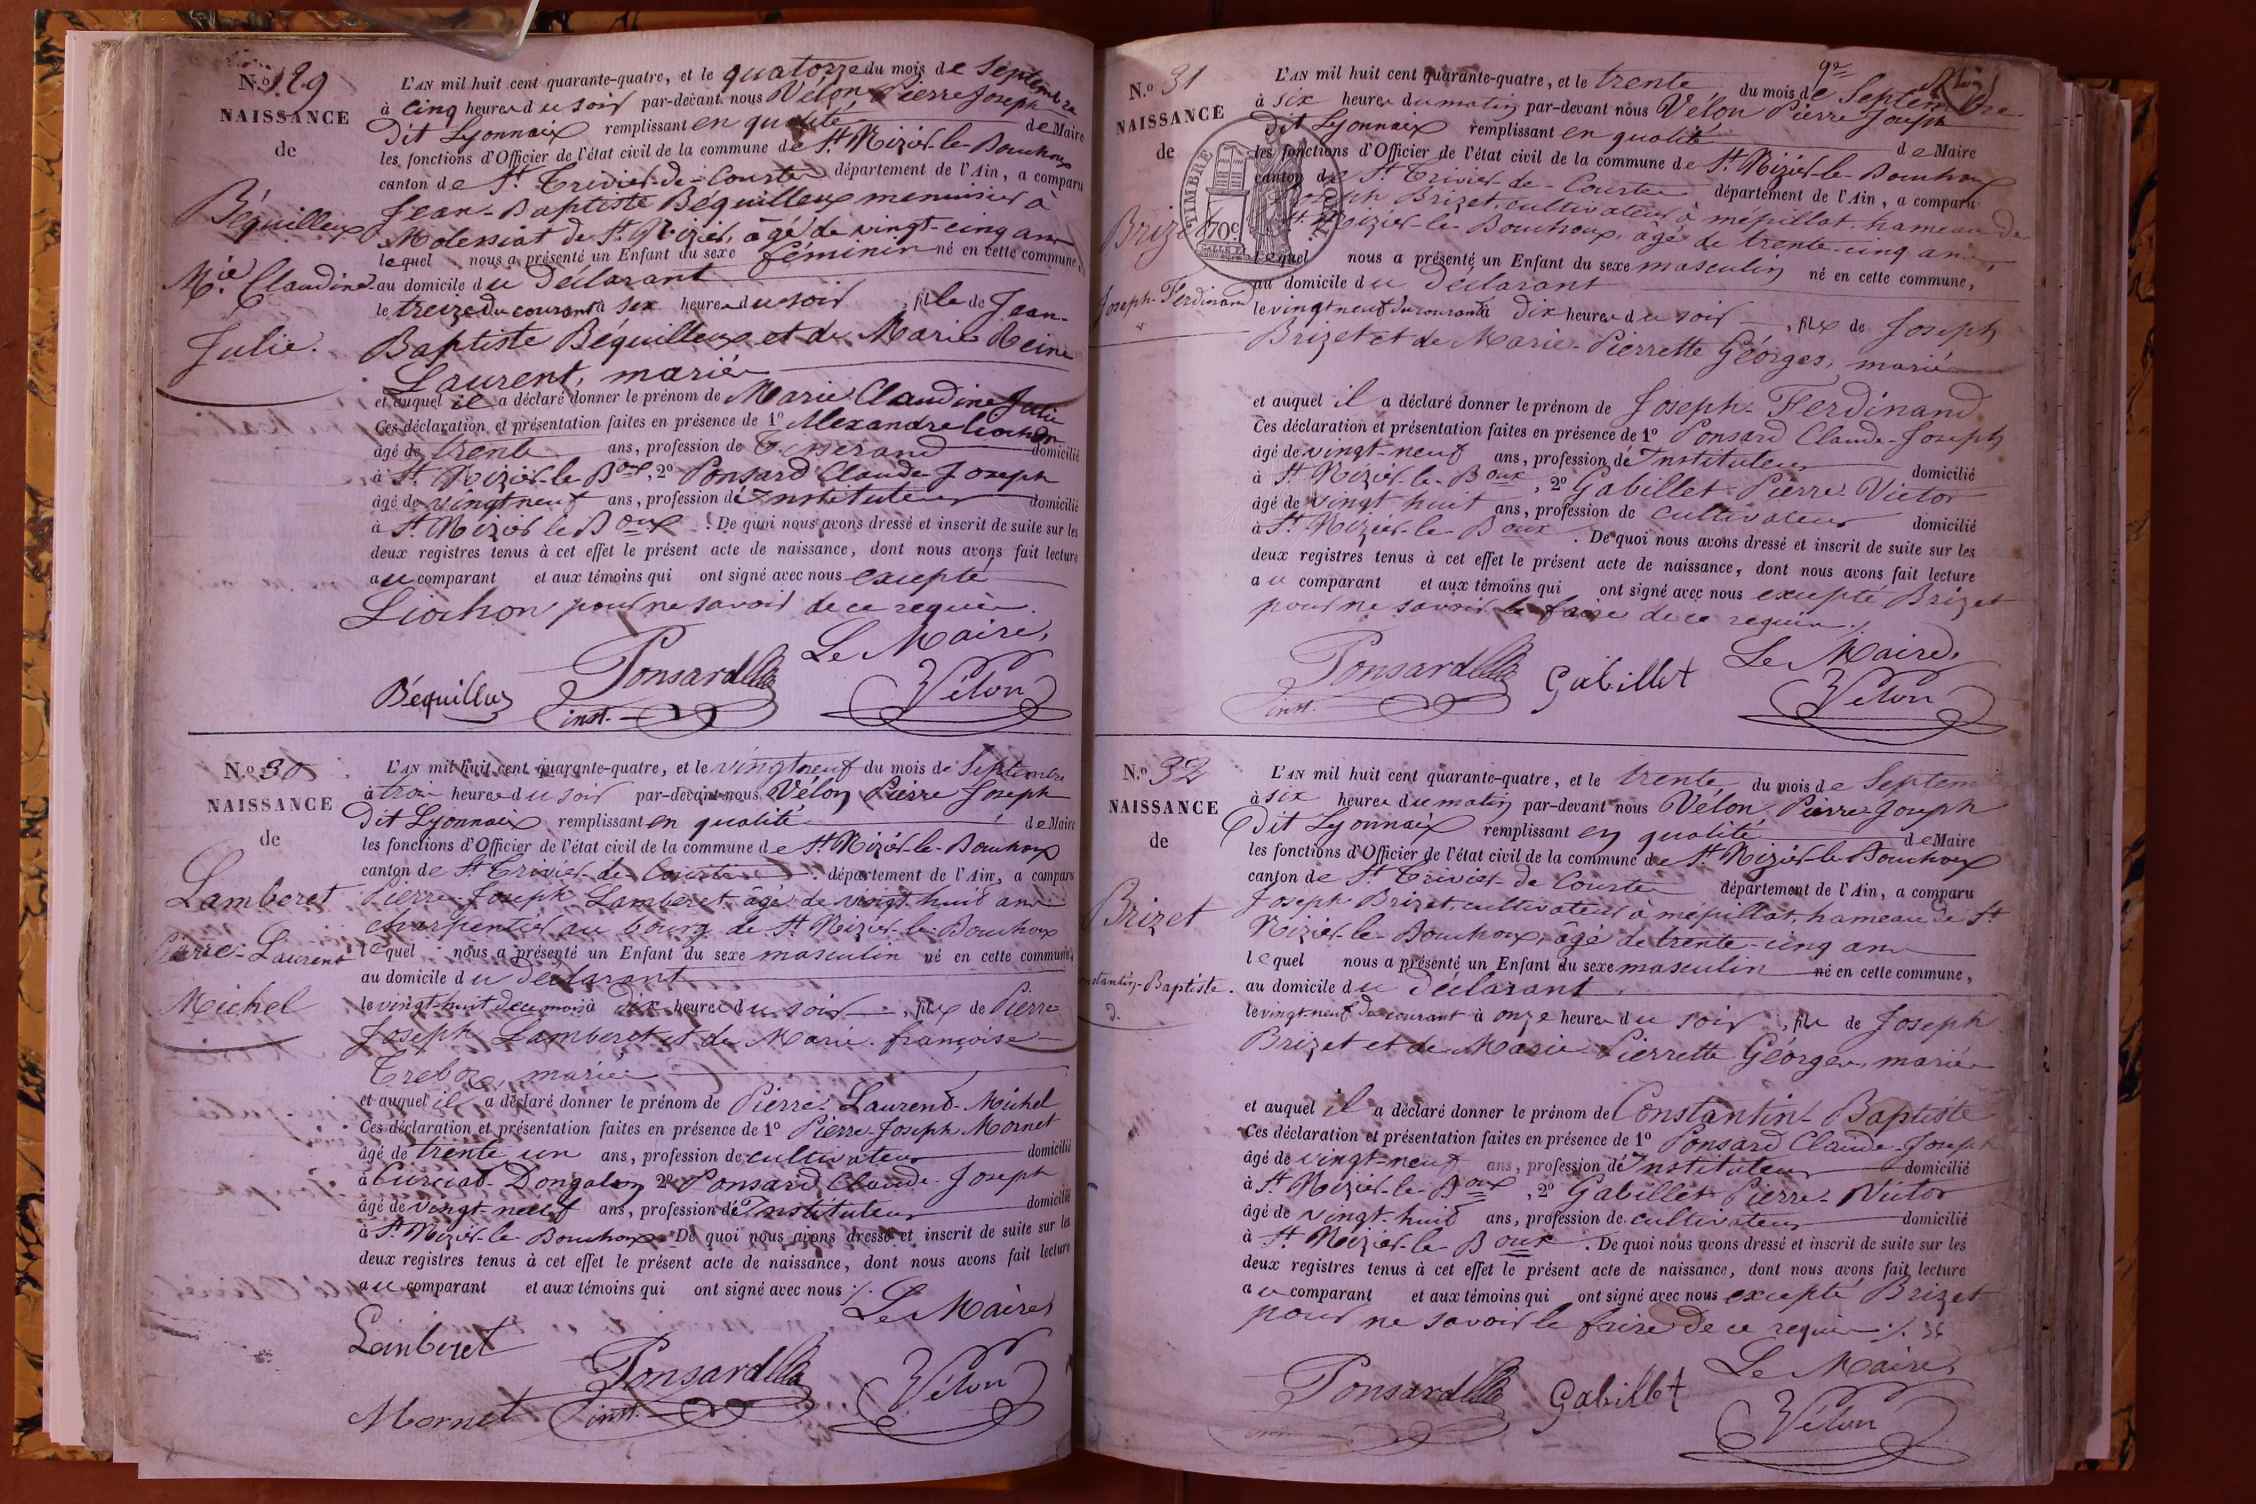 N.o 29
NAISSANCE
de
Béquilleux
M.ie Claudine
Julie.
L'AN mil huit cent quarante-quatre, et le quatorze du mois de Septembre
à cinq heures du soir par-devant nous Vélon Pierre Joseph
dit Lyonnaix remplissant en qualité de Maire
les fonctions d'Officier de l'état civil de la commune de St. Nizier-le-Bouchoux
canton de St. Trivier-de-Courtes département de l'Ain, a comparu
Jean-Baptiste Béquilleux menuisier à
Molessiat de St. Nizier, âgé de vingt-cinq ans
lequel nous a présenté un Enfant du sexe féminin né en cette commune,
au domicile du déclarant
le treize du courant à six heures du soir, fille de Jean-
Baptiste Béquilleux et de Marie Reine
Laurent, mariés
et auquel il a déclaré donner le prénom de Marie Claudine Julie
Ces déclaration et présentation faites en présence de 1o Alexandre Liochon
âgé de trente ans, profession de Tisserand domicilié
à St. Nizier-le-Boux, 2o Ponsard Claude Joseph
âgé de vingt neuf ans, profession d'Instituteur domicilié
à St. Nizier le Boux. De quoi nous avons dressé et inscrit de suite sur les
deux registres tenus à cet effet le présent acte de naissance, dont nous avons fait lecture
au comparant et aux témoins qui ont signé avec nous excepté
Liochon pour ne savoir de ce requis.
Le Maire,
Béquillux Ponsard Vélon
inst.
N.o 30
NAISSANCE
de
Lamberet
Pierre-Laurent
Michel
L'AN mil huit cent quarante-quatre, et le vingt neuf du mois de Septembre
à trois heures du soir par-devant nous Vélon Pierre Joseph
dit Lyonnaix remplissant en qualité de Maire
les fonctions d'Officier de l'état civil de la commune de St. Nizier-le-Bouchoux
canton de St Trivier-de-Courtes département de l'Ain, a comparu
Pierre-Joseph Lamberet âgé de vingt-huit ans
charpentier au bourg de St. Nizier-le-Bouchoux
lequel nous a présenté un Enfant du sexe masculin né en cette commune,
au domicile du déclarant
le vingt-huit de ce mois à dix heures du soir, fils de Pierre
Joseph Lamberet et de Marie françoise
Treboz, mariés
et auquel il a déclaré donner le prénom de Pierre-Laurent-Michel
Ces déclaration et présentation faites en présence de 1o Pierre-Joseph Mornet
âgé de trente un ans, profession de cultivateur domicilié
à Curciat-Dongalon 2o Ponsard Claude Joseph
âgé de vingt-neuf ans, profession d'Instituteur domicilié
à St. Nizier-le-Bouchoux. De quoi nous avons dressé et inscrit de suite sur les
deux registres tenus à cet effet le présent acte de naissance, dont nous avons fait lecture
au comparant et aux témoins qui ont signé avec nous ./.
Le Maire
Lamberet
Ponsard Vélon
Mornet inst.
N.o 31
NAISSANCE
de
Brizet
Joseph-Ferdinand
TIMBRE
ROYAL
70c
L'AN mil huit cent quarante-quatre, et le trente du mois de Septembre
à six heures du matin par-devant nous Vélon Pierre Joseph
dit Lyonnaix remplissant en qualité de Maire
les fonctions d'Officier de l'état civil de la commune de St. Nizier-le-Bouchoux
canton de St. Trivier-de-Courtes département de l'Ain, a comparu
Joseph Brizet, cultivateur à mépillat, hameau de
St Nizier-le-Bouchoux, âgé de trente-cinq ans,
lequel nous a présenté un Enfant du sexe masculin né en cette commune,
au domicile du déclarant
le vingt neuf du courant à dix heures du soir, fils de Joseph
Brizet et de Marie-Pierrette Géorges, mariés
et auquel il a déclaré donner le prénom de Joseph-Ferdinand
Ces déclaration et présentation faites en présence de 1o Ponsard Claude-Joseph
âgé de vingt-neuf ans, profession d'Instituteur domicilié
à St. Nizier-le-Boux, 2o Gabillet Pierre-Victor
âgé de vingt huit ans, profession de cultivateur domicilié
à St. Nizier-le-Boux. De quoi nous avons dressé et inscrit de suite sur les
deux registres tenus à cet effet le présent acte de naissance, dont nous avons fait lecture
au comparant et aux témoins qui ont signé avec nous excepté Brizet
pour ne savoir le faire de ce requis ./.
Le Maire,
Ponsard Gabillet Vélon
inst.
N.o 32
NAISSANCE
de
Brizet
Constantin-Baptiste.
L'AN mil huit cent quarante-quatre, et le trente du mois de Septem
à six heures du matin par-devant nous Vélon Pierre Joseph
dit Lyonnaix remplissant en qualité de Maire
les fonctions d'Officier de l'état civil de la commune de St. Nizier-le-Bouchoux
canton de St. Trivier-de-Courtes département de l'Ain, a comparu
Joseph Brizet, cultivateur à mépillat, hameau de St
Nizier-le-Bouchoux, âgé de trente-cinq ans
lequel nous a présenté un Enfant du sexe masculin né en cette commune,
au domicile du déclarant
le vingt neuf du courant à onze heures du soir, fils de Joseph
Brizet et de Marie Pierrette Géorges, mariés
et auquel il a déclaré donner le prénom de Constantin-Baptiste
Ces déclaration et présentation faites en présence de 1o Ponsard Claude-Joseph
âgé de vingt-neuf ans, profession d'Instituteur domicilié
à St. Nizier-le-Boux, 2o Gabillet Pierre-Victor
âgé de vingt-huit ans, profession de cultivateur domicilié
à St. Nizier-le-Boux. De quoi nous avons dressé et inscrit de suite sur les
deux registres tenus à cet effet le présent acte de naissance, dont nous avons fait lecture
au comparant et aux témoins qui ont signé avec nous excepté Brizet
pour ne savoir le faire de ce requis ./.
Le Maire,
Ponsard Gabillet Vélon